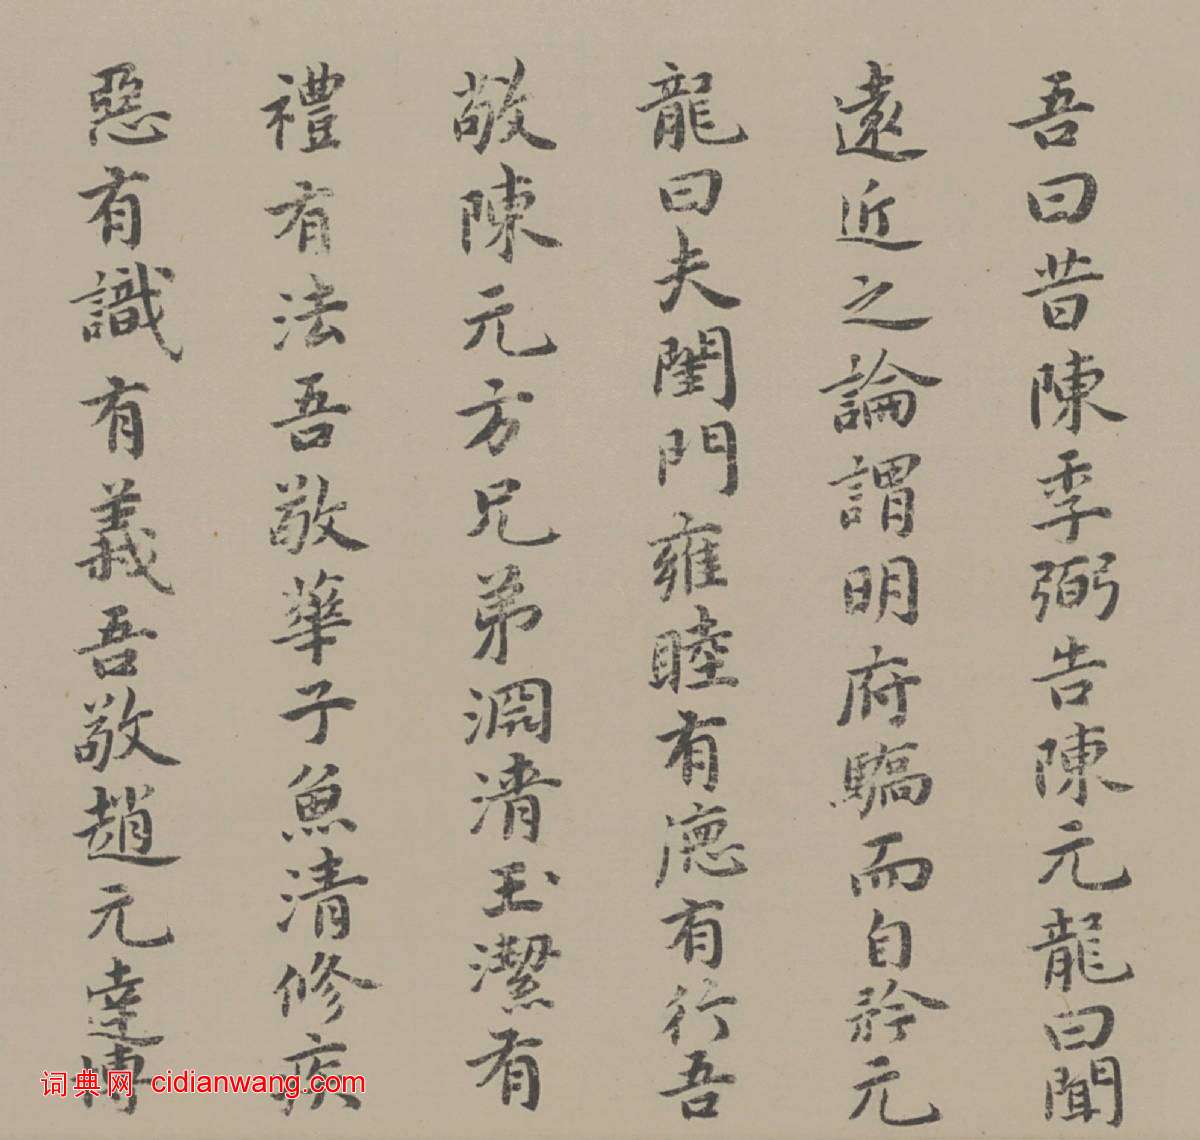 吾曰昔陳季弼告陳元龍曰聞
遠近之論謂明府驕而自矜元
龍曰夫閨門雍睦有德有行吾
敬陳元方兄弟淵清玉潔有
禮有法吾敬華子魚清修疾
惡有識有義吾敬趙元達博
词典网 cidianwang.com